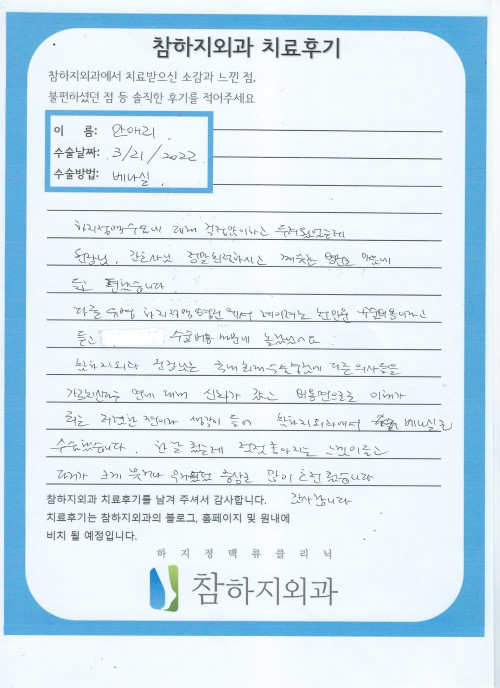 참하지외과 치료후기
참하지외과에서 치료받으신 소감과 느낀 점,
불편하셨던 점 등 솔직한 후기를 적어주세요
이 름: 안애리
수술날짜: 3/21/2022
수술방법: 베나실
하지정맥수술에 대해 걱정많이하고 두려웠었는데
원장님, 간호사님 정말 친절하시고 깨끗한 병원
듣고 했습니다
다를 하지정맥병원에서 레이저는 수술비용이라고
듣고 수술비용 때문에 놀랐습니다
참하지외과 원장님은 국내 최대 수술 다른의사들을
가르치신다는 면에 대해 신뢰가 갔고 비용면으로도
저렴한 편이라 생각이 들어 참하지외과에서 베나실로
수술했습니다. 한달 됐는데 점점 좋아지는 느낌이들고
다리가 크게 증상은 많이 습니다
감사합니다
참하지외과 치료후기를 남겨 주셔서 감사합니다.
치료후기는 참하지외과의 블로그, 홈페이지 및 원내에
비치 될 예정입니다.
하지정맥류클리닉
참하지외과